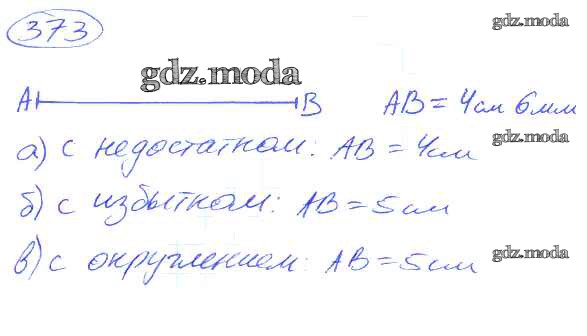 373
gdz.moda
gdz.moda
A B AB = 4см 6мм
gdz.moda
а) с недостатком: AB = 4см
б) с избытком: AB = 5см
в) с округлением: AB = 5см
gdz.moda